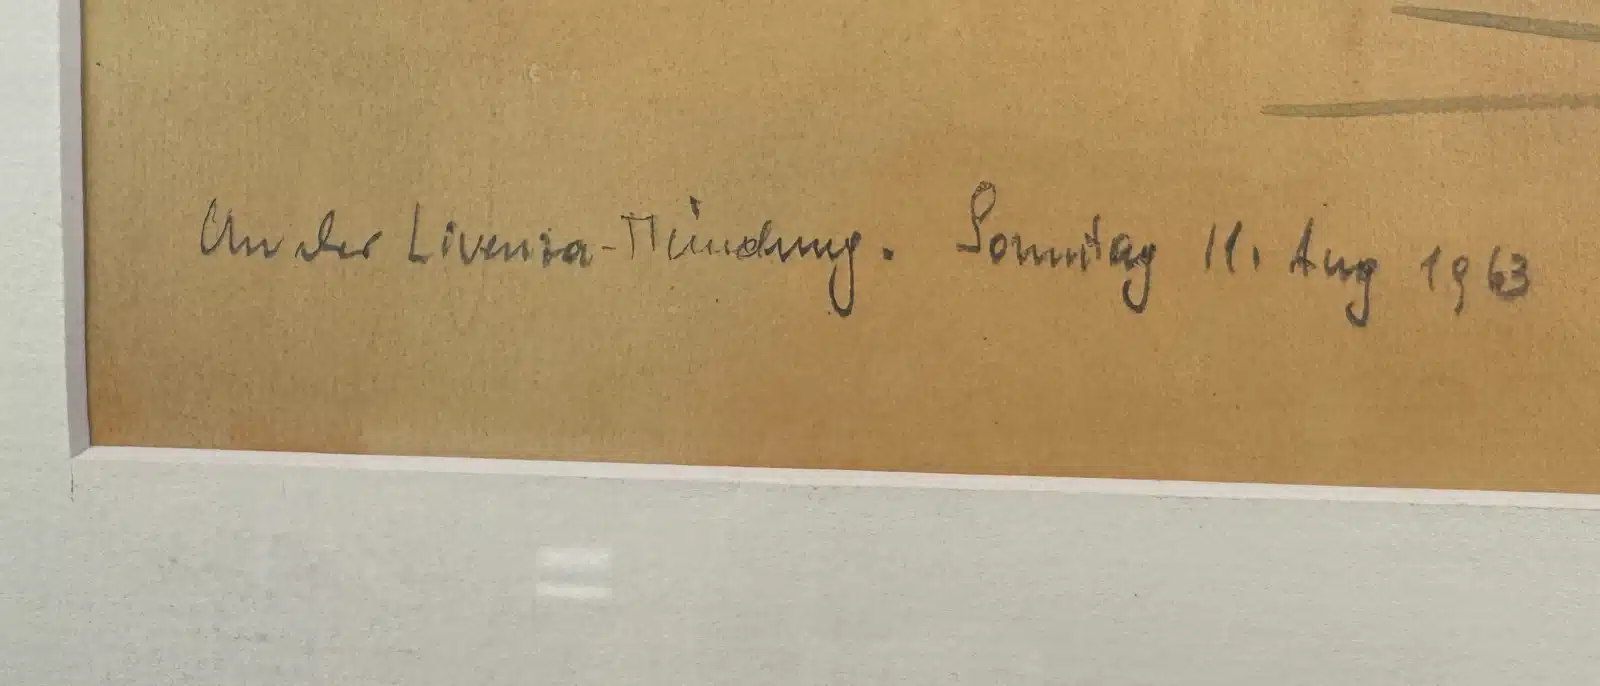 An der Livenza-Mündung. Sonntag 11. Aug 1963